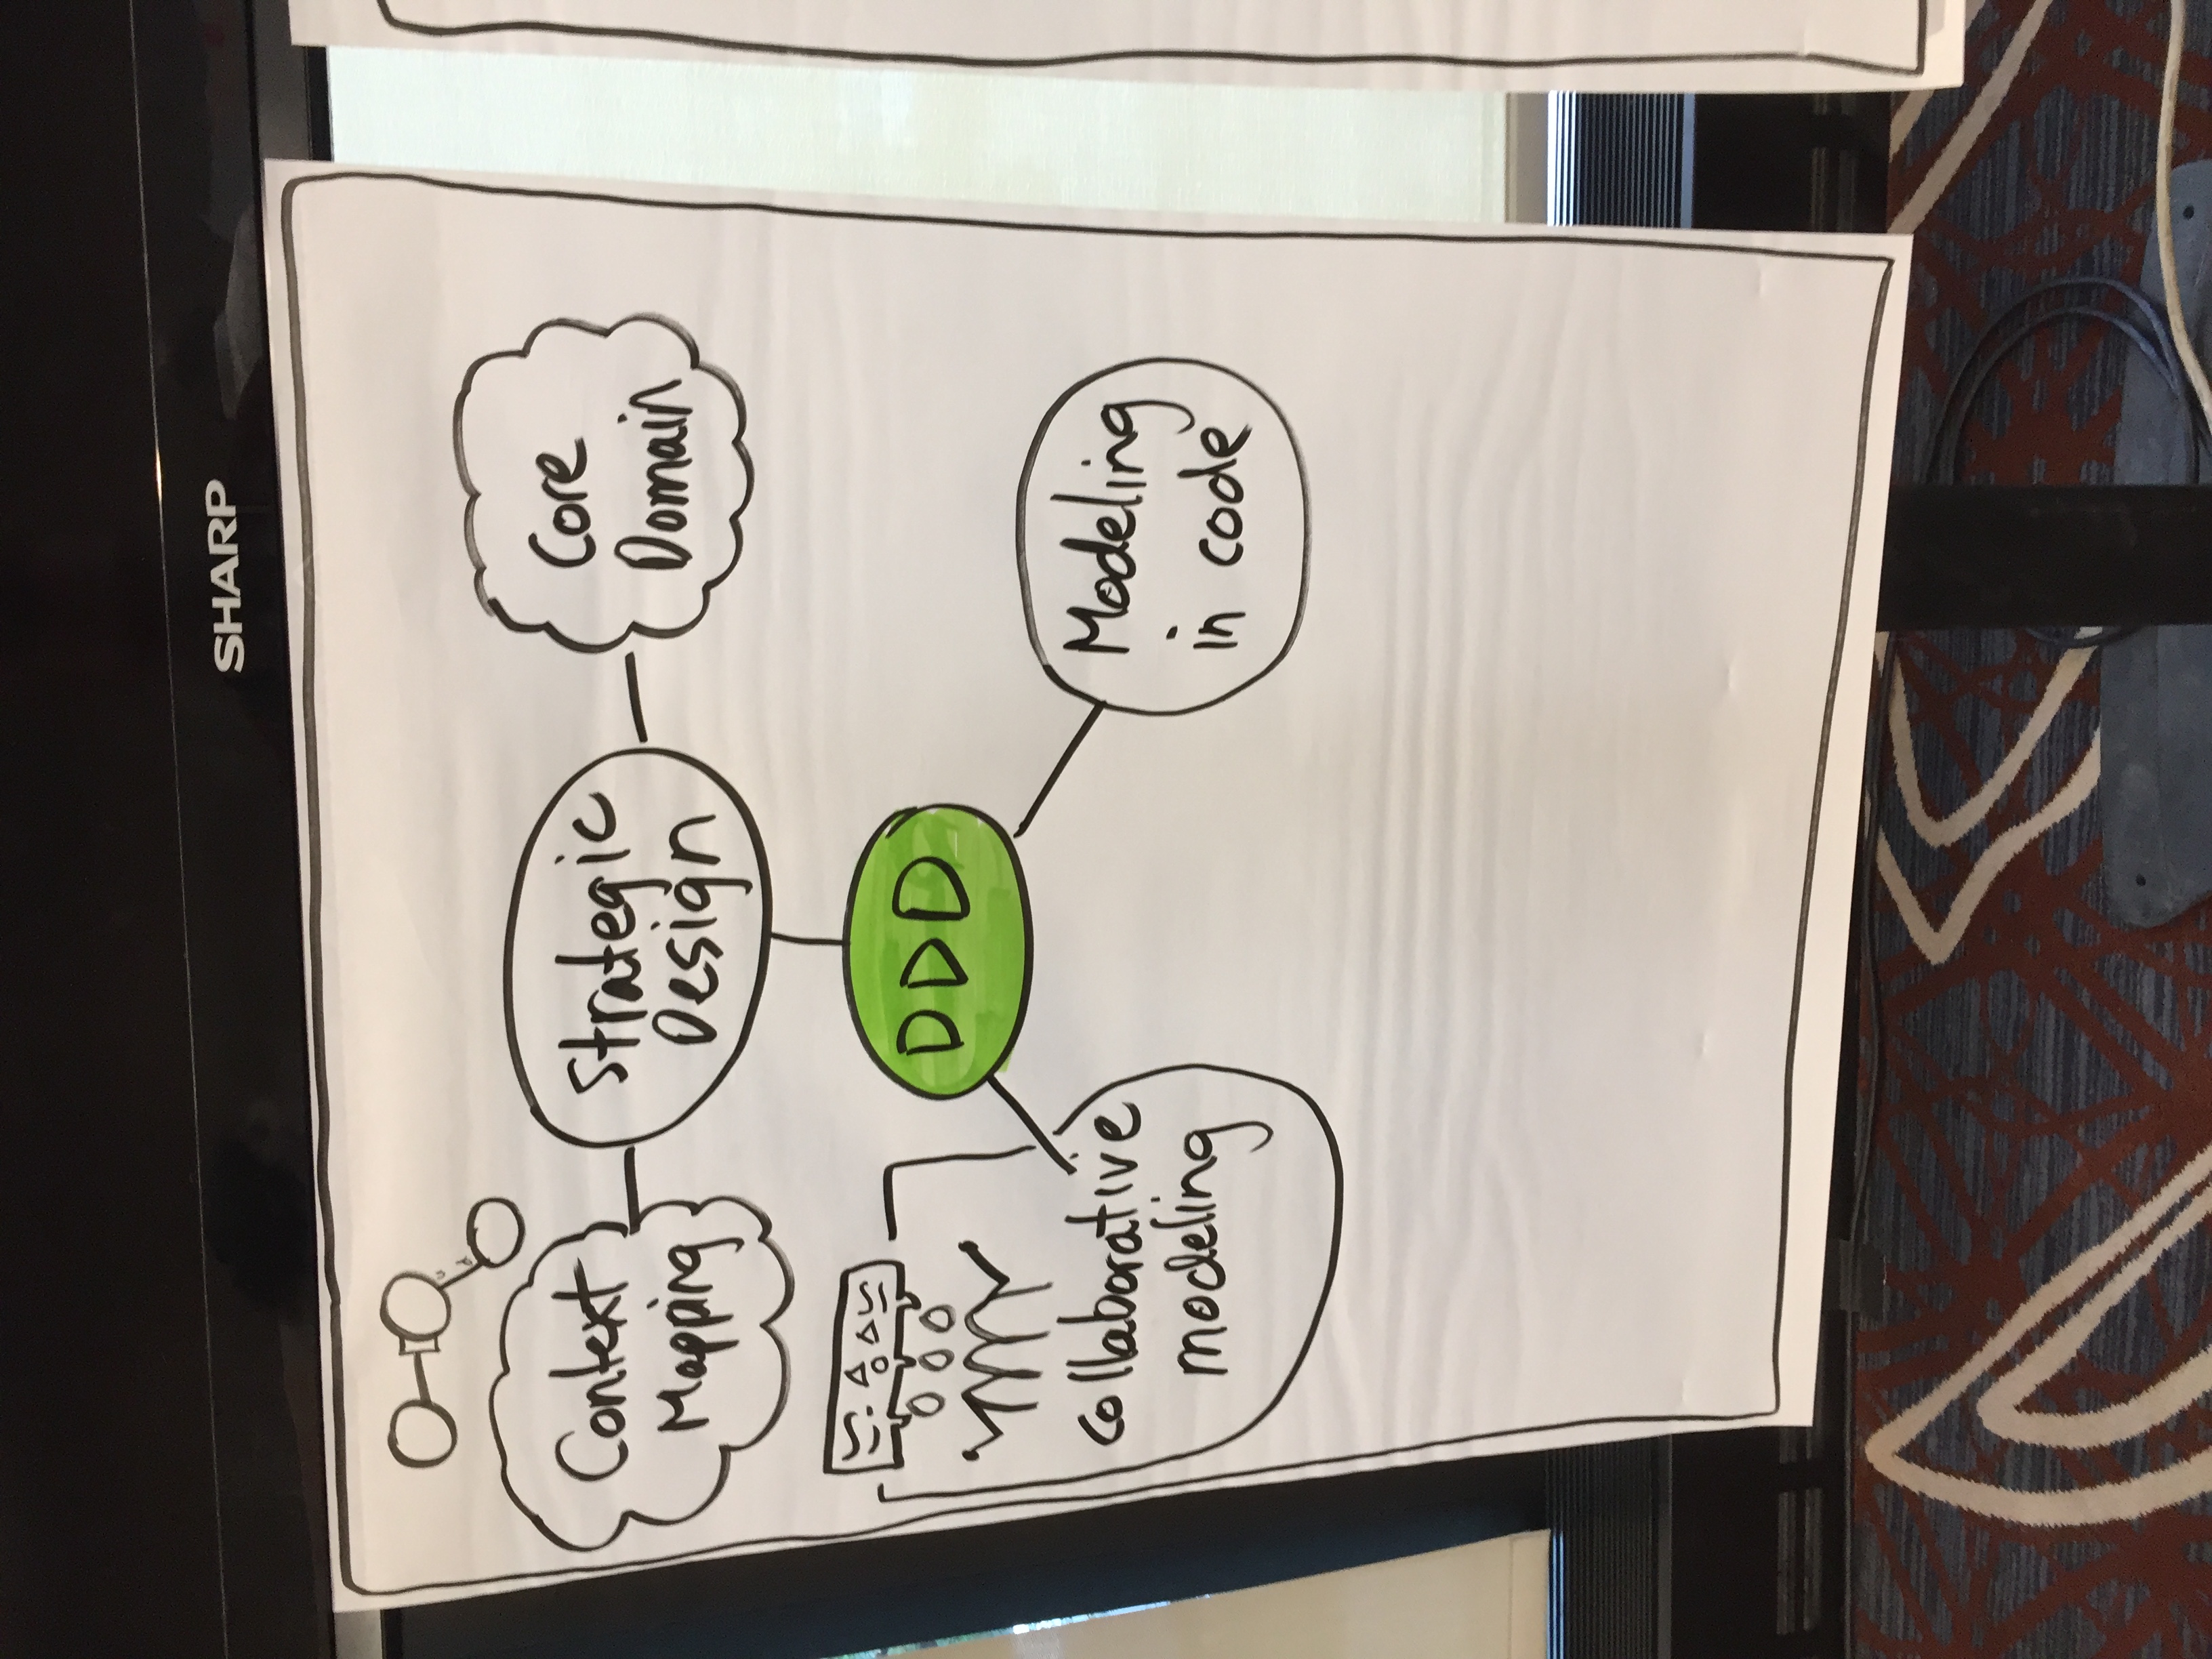 SHARP
u
d
Context
Mapping
Strategic
Design
Core
Domain
DDD
Collaborative
modeling
Modeling
in code